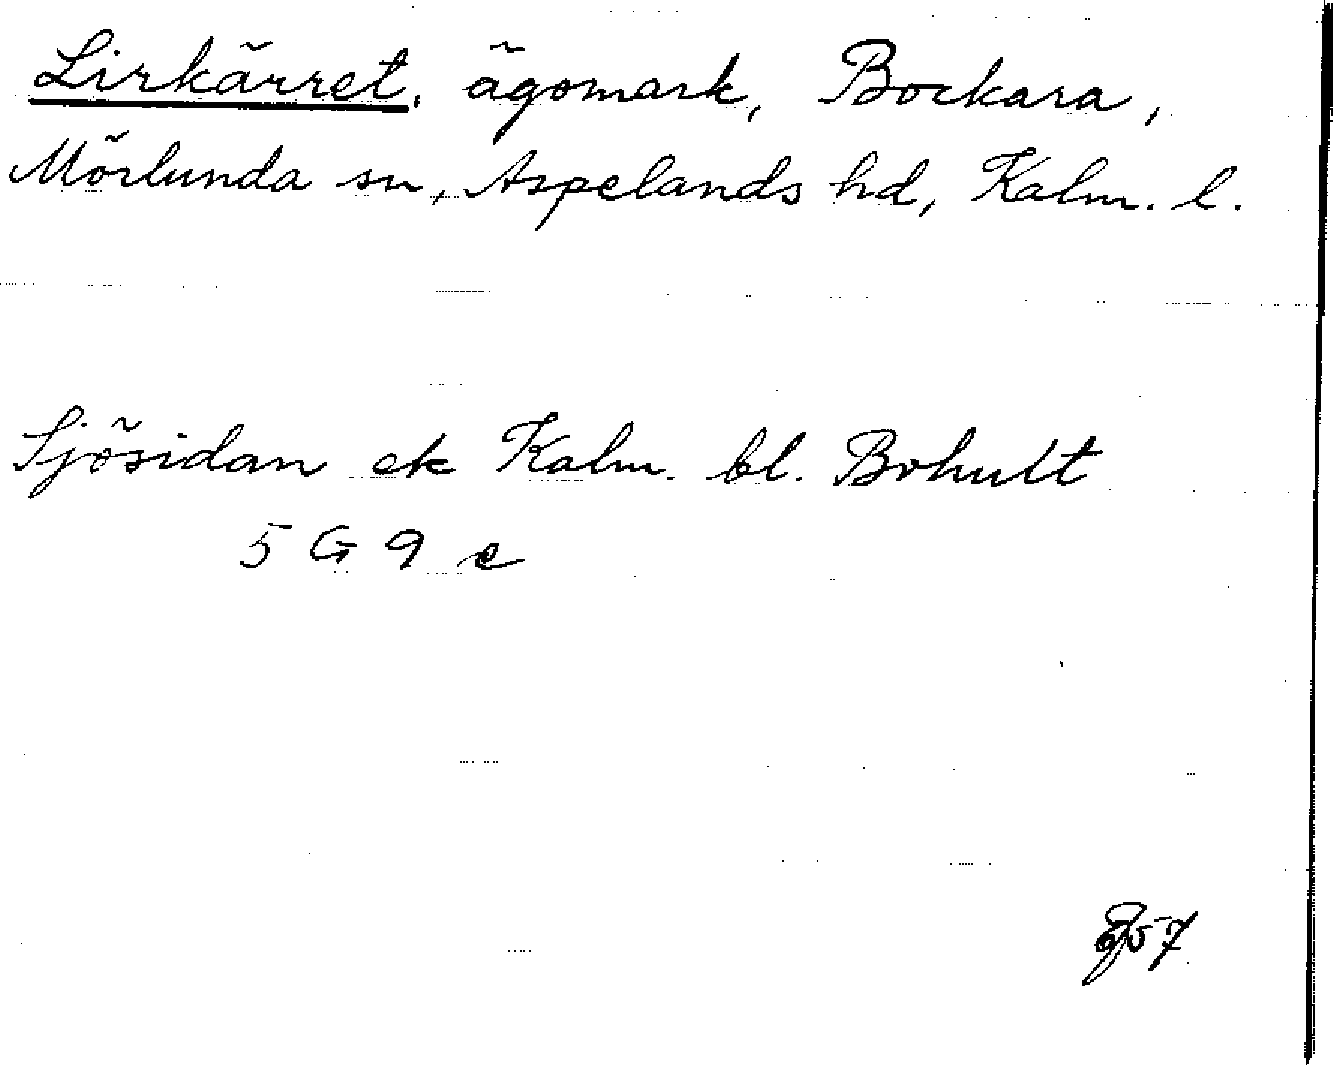 Lirkärret, ägomark, Bockara,
Mörlunda sn, Aspelands hd, Kalm. l.
Sjösidan ek Kalm. bl. Bohult
5 G 9 e